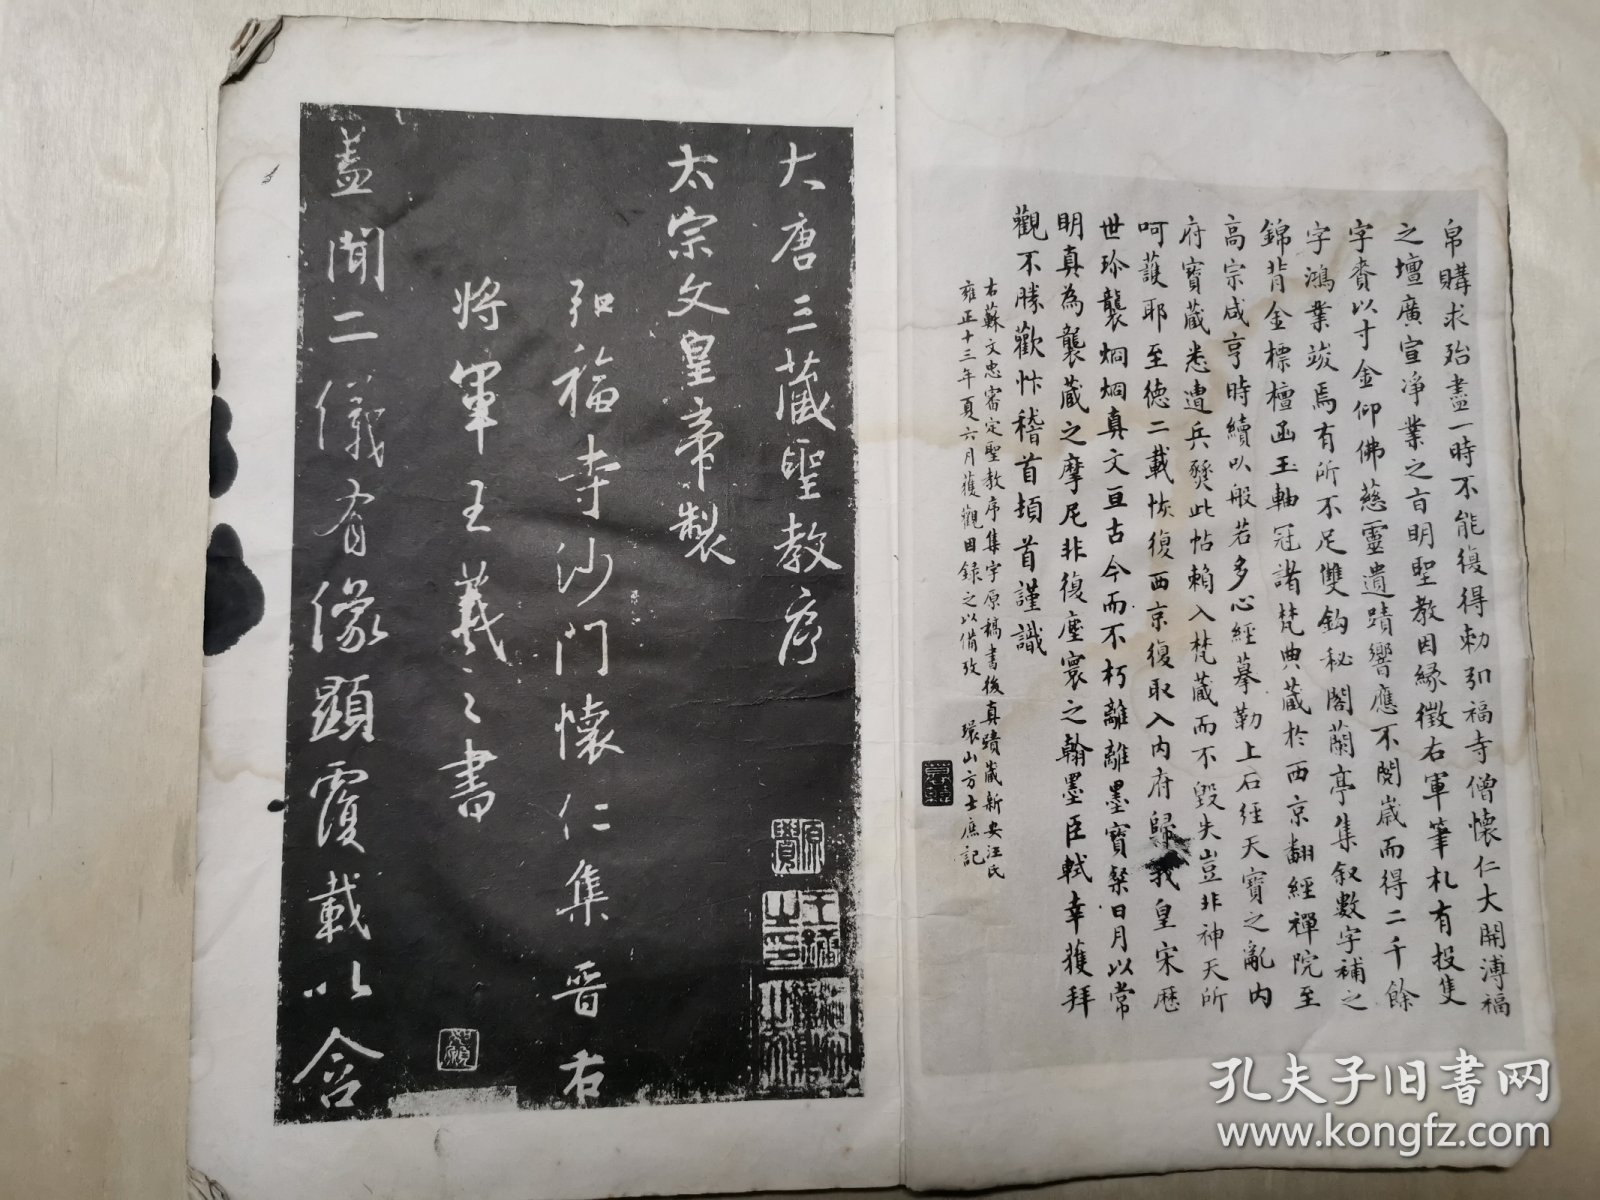 帛購求殆盡一時不能復得勅弘福寺僧懷仁大開溥福
之壇廣宣淨業之旨明聖教因緣徵右軍筆札有投隻
字賚以寸金仰佛慈靈遺蹟響應不閱歲而得二千餘
字鴻業竣焉有所不足雙鈎秘閣蘭亭集叙數字補之
錦背金標檀函玉軸冠諸梵典藏於西京翻經禪院至
高宗咸亨時續以般若多心經摹勒上石経天寶之亂內
府寶藏悉遭兵燹此帖賴入梵藏而不毀失豈非神天所
呵護耶至德二載恢復西京復取入内府歸我皇宋歷
世珍襲炯炯真文亘古今而不朽離離墨寶粲日月以常
明真為襲藏之摩尼非復塵寰之翰墨臣軾幸獲拜
觀不勝歡忭稽首頓首謹識
右蘇文忠審定聖教序集字原稿書後真蹟藏新安汪氏
雍正十三年夏六月獲觀因錄之以備攷 環山方士庶記
大唐三藏聖教序
太宗文皇帝製
弘福寺沙門懷仁集晉右
將軍王羲之書
蓋聞二儀有像顯覆載以含
孔夫子旧書网
www.kongfz.com